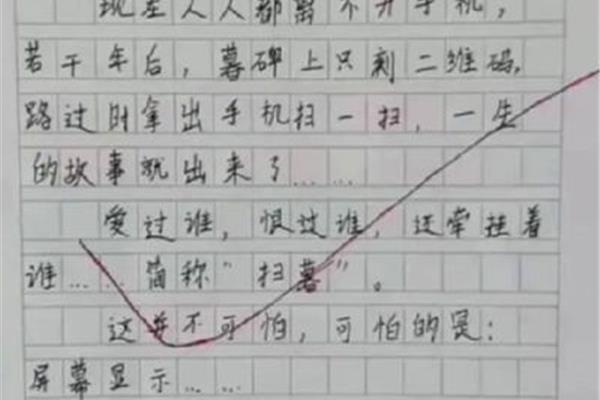 现在人人都离不开手机，
若干年后，墓碑上只刻二维码，
路过时拿出手机扫一扫，一生
的故事就出来了……
爱过谁，恨过谁，还牵挂着
谁……简称“扫墓”。
这并不可怕，可怕的是：
屏幕显示……